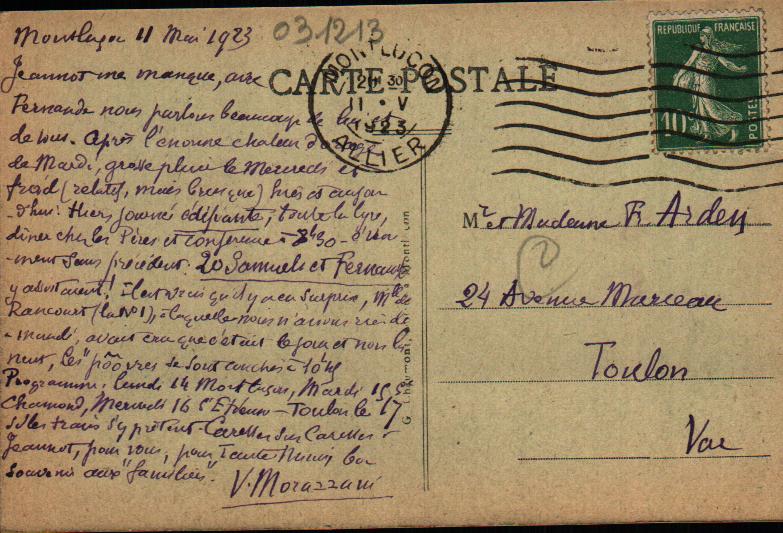 Montluçon 11 Mai 1923
031213
CARTE POSTALE
MONTLUCON
ALLIER
11 · V
1923
REPUBLIQUE FRANÇAISE
10
POSTES
Jeannot me manque, avec
Fernande nous parlons beaucoup de lui et
de vous. Après l'énorme chaleur
de Mardi, grosse pluie le Mercredi et
froid (relatif, mais brusque) hier et aujour
-d'hui. Hiers journée édifiante, toute la lyre,
diner chez les Pères et conférence à 8h30 -
-ment sans précédent. 20 Samuels et Fernande
y assistaient! Il est vrai qu'il y a eu surprise, Mlle de
Rancourt (la No1), à laquelle nous n'avions rien de
-mandé, avait cru que c'était le jour et nous
Les "pôôvres se sont couchés à
Programme: Lundi 14 Montluçon, Mardi 15 St
Chamond, Mercredi 16 St Etienne - Toulon le 17
si les trains s'y prêtent. Caresses sur Caresses à
Jeannot, pour vous, pour Tante bon
souvenir aux "familiers".
V. Morazzani
Mr et Madame F. Arden
24 Avenue Marceau
Toulon
Var